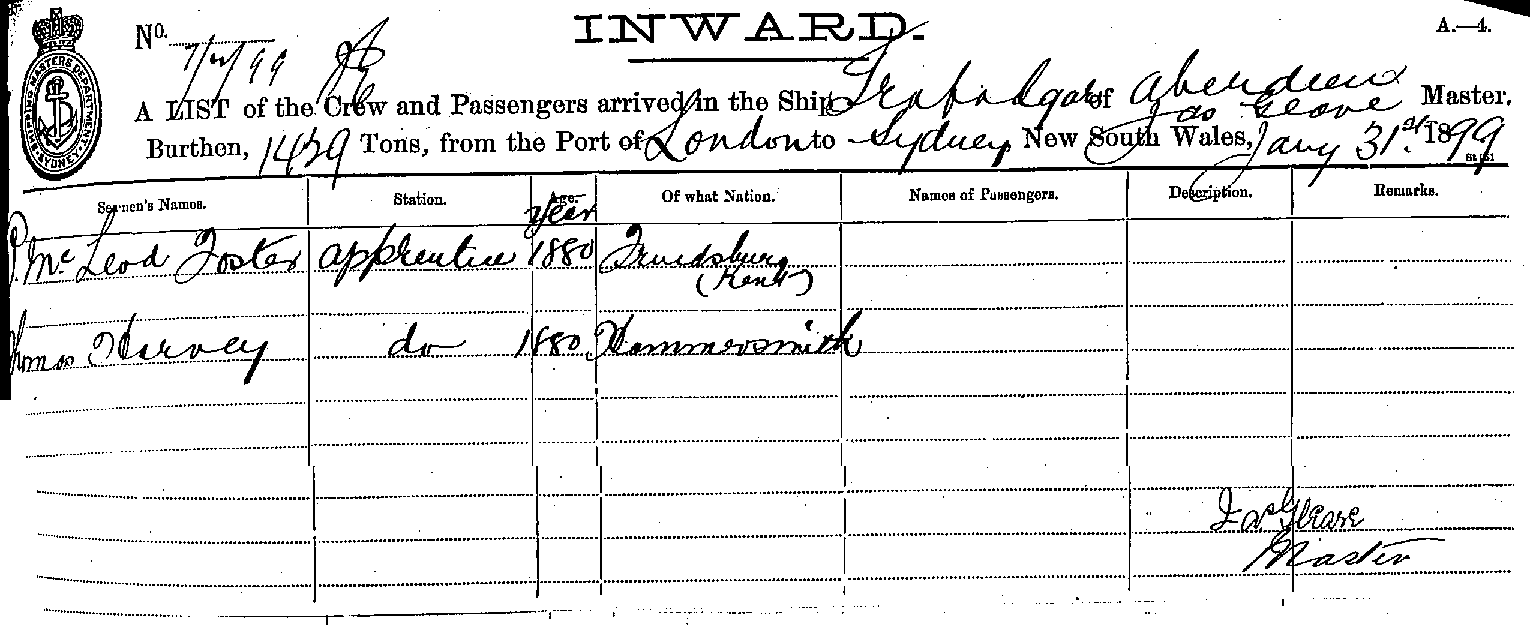 INWARD.
A.—4.
No.
SHIPPING MASTERS DEPARTMENT SYDNEY
A LIST of the Crew and Passengers arrived in the Ship Trafalgar of Aberdeen
Jas Master,
Burthen, 1429 Tons, from the Port of London to Sydney New South Wales, Jany 31st 1899
Seamen's Names. Station. Age. Of what Nation. Names of Passengers. Description. Remarks.
year
P. Mc Leod Foster apprentice 1880
(Kent)
Thomas Harvey do 1880 Hammersmith
Jas
Master